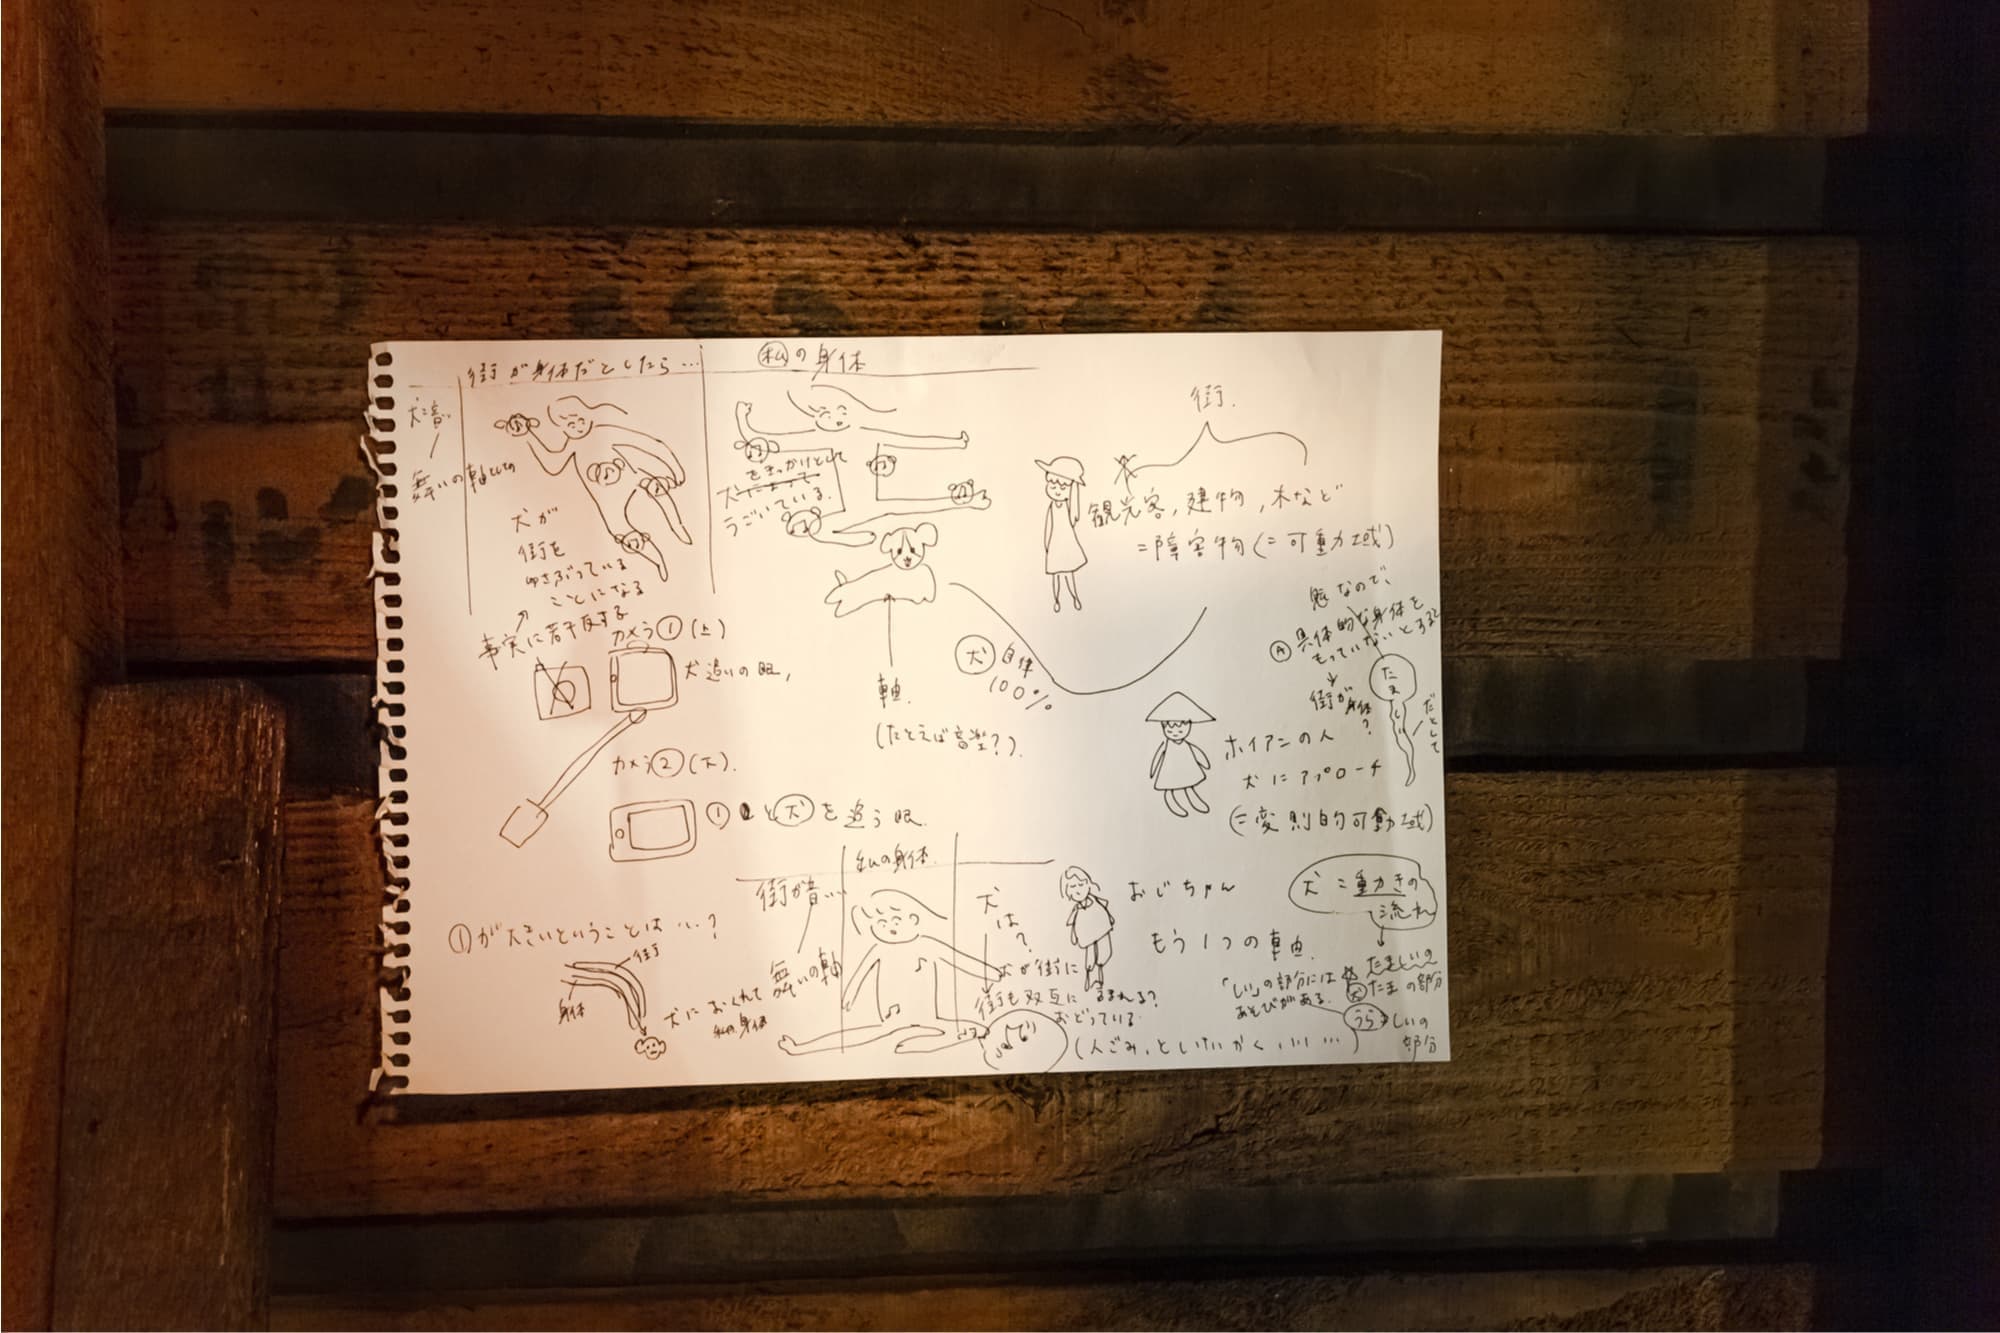 街が身体だとしたら…
私の身体
犬=音
舞いの軸としての
犬が
街を
ゆさぶっている
ことになる
事実に若干反する
をきっかけとして
うごいている.
街.
観光客,建物,木など
=障害物(=可動域)
カメラ①(上)
犬追いの眼,
カメラ②(下).
①と犬を追う眼.
軸.
(たとえば音楽?).
犬 自体
100%
魅なので、
Ⓐ具体的な身体を
もっていないとすると
街が
身体?
たま
しい
だとして
ホイアンの人
犬にアプローチ
(=変則的可動域)
①が大きいということは…?
街
身体
犬におくれて
私の身体
街が音…
舞いの軸
私の身体.
犬
は?
犬が街に
街も双互に
おどっている.
おじちゃん
もう1つの軸.
「しい」の部分には
あそびがある.
犬=動きの
流れ
たましいの
たまの部分
うら しいの
部分